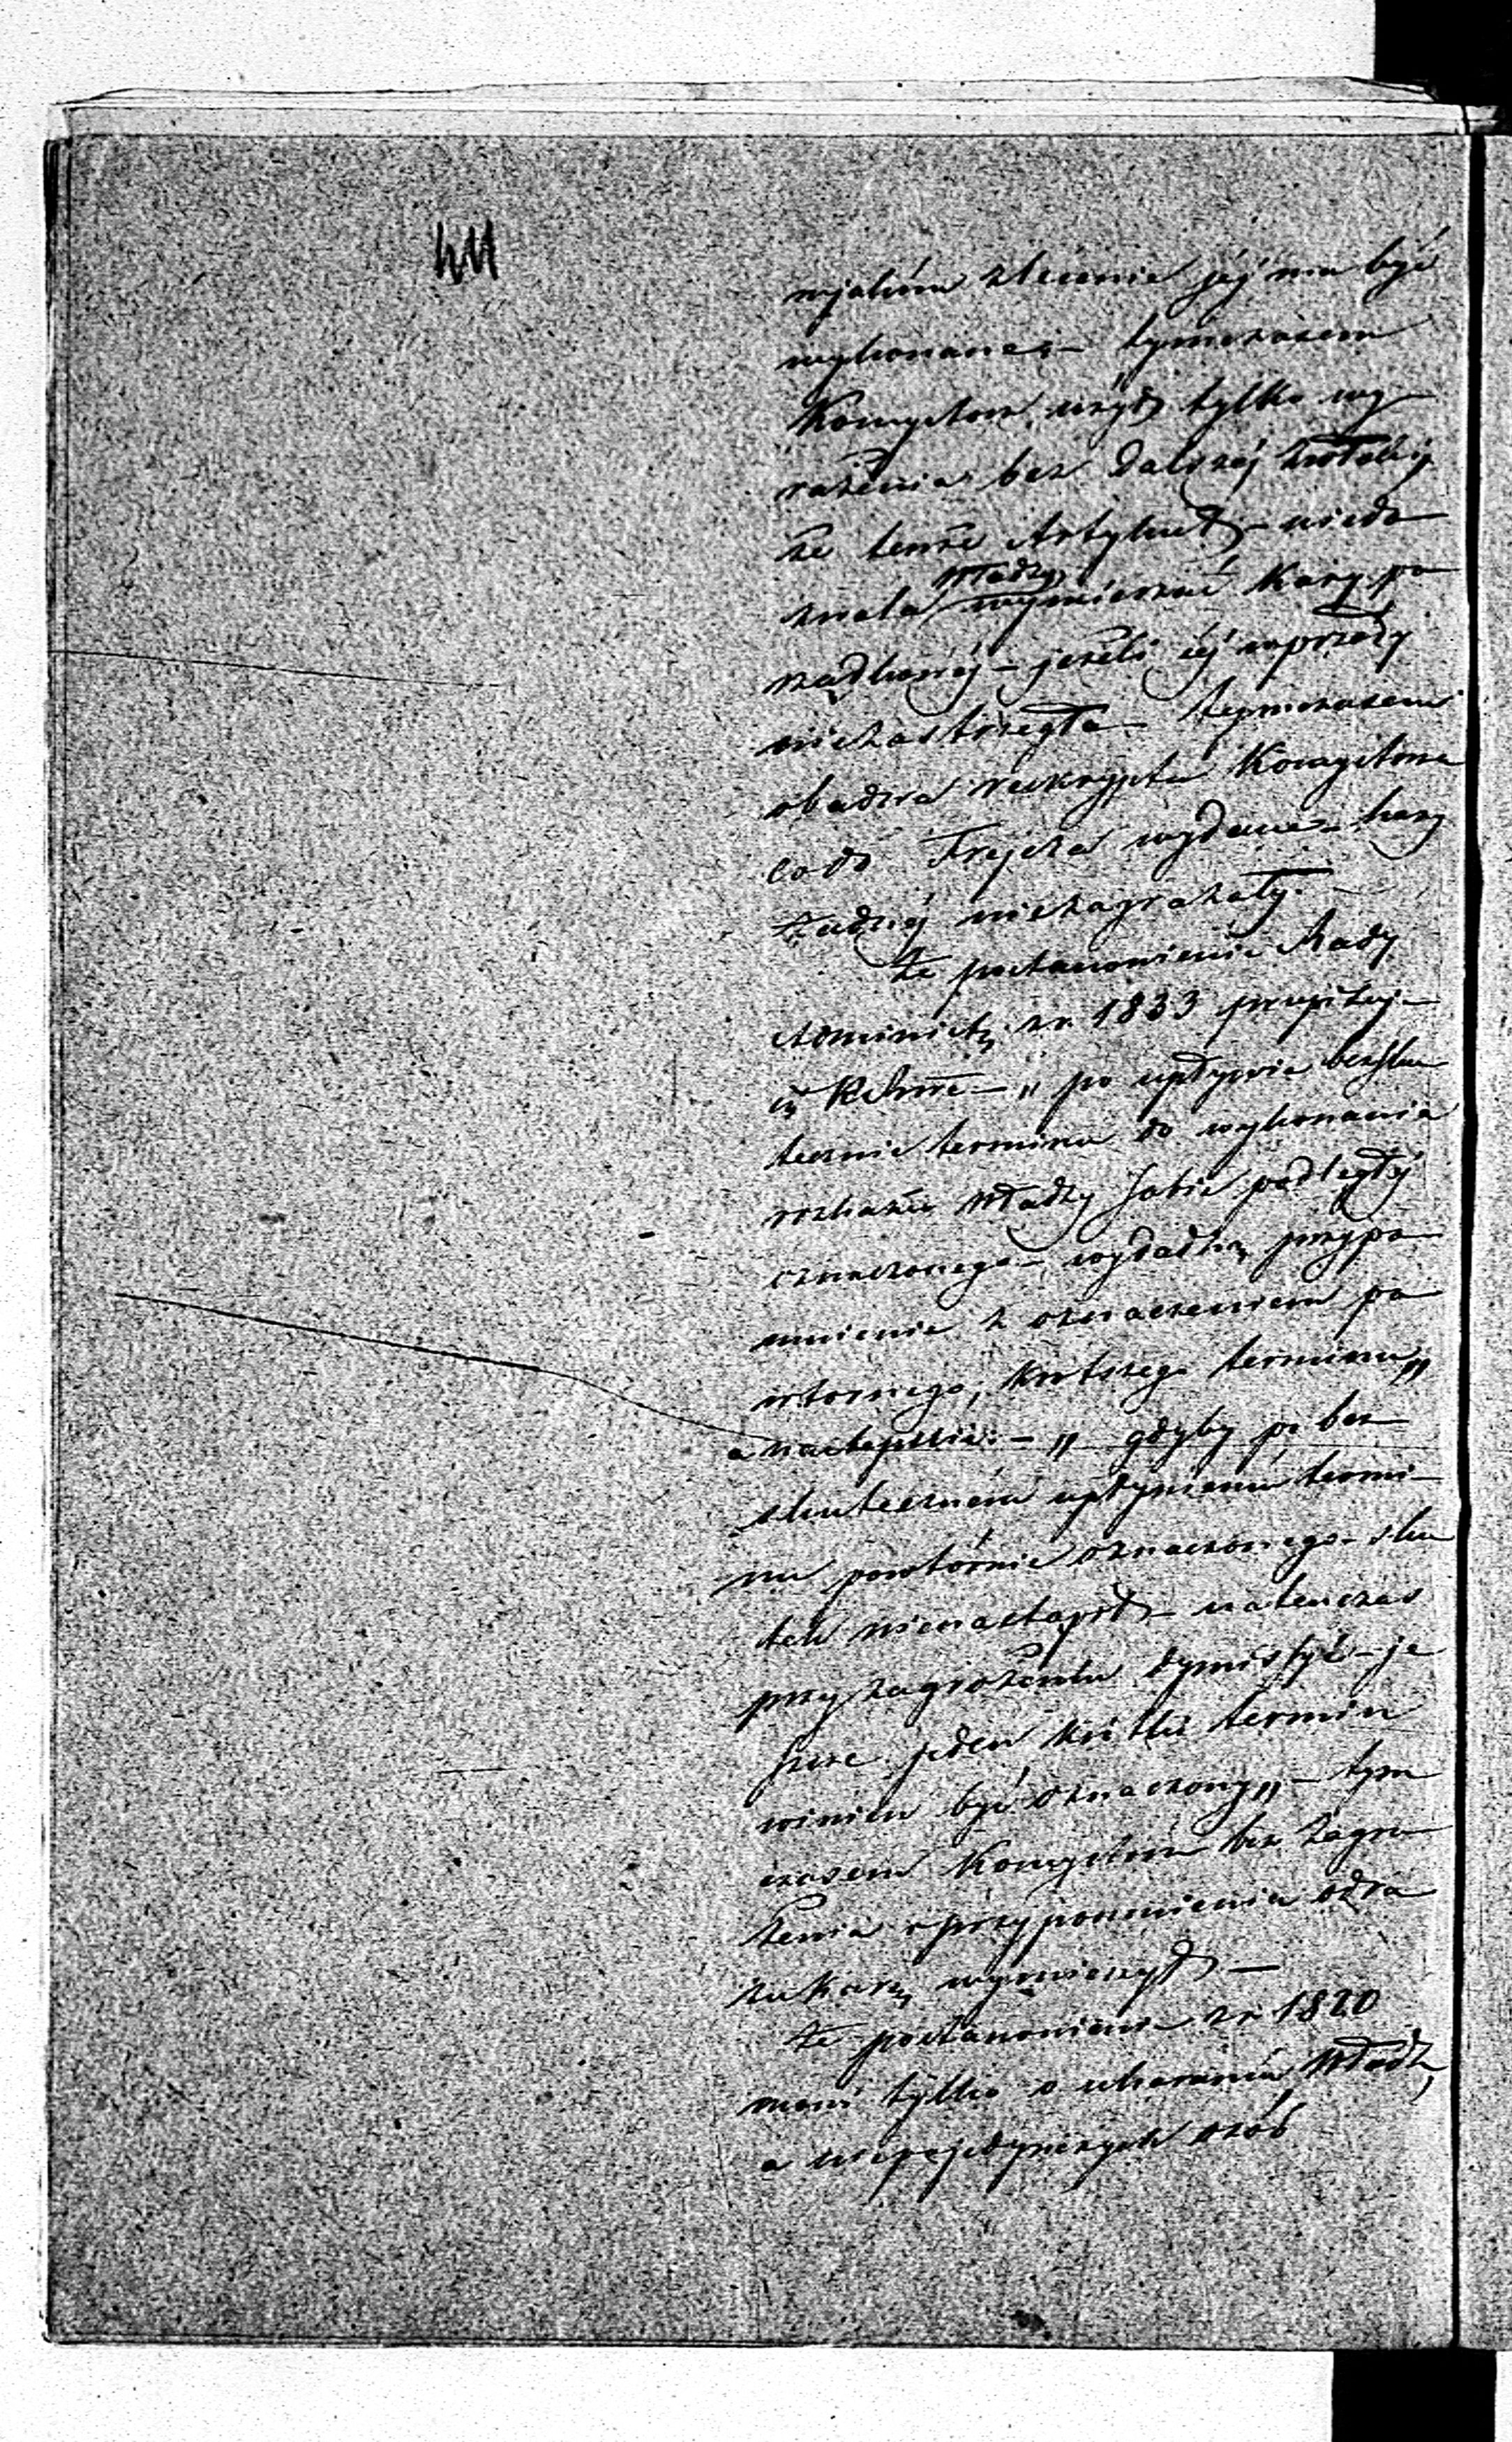 w jakim zlecenie jej ma być
wykonane, – tymczasem
Konsystorz użył tylko wy
rażenia bez dalszéj zwłoki
że tenże Artykuł – niedo
zwala Władzy wymierzać Kary po
rządkowéj – jeżeli jéj wprzódy
niezastrzegła – tymczasem
obadwa reskrypta Konsystorza
co do Frejera wydane – kary
żadnéj niezagrażały.
Że postanowienie Rady
Administ. z r. 1833 przepisuj-
„ po upływie bezsku
tecznie terminu do wykonania
rozkazu Władzy sobie podległéj
oznaczonego – wydadzą przypo
mnienie z oznaczeniem po
wtornego, krótszego terminu„
a następnie: – „ gdyby po bez
skutecznem upłynieniu termi-
nu powtórnie oznaczonego – sku
tek nienastąpił – natenczas
przy zagrożeniu dymissyi – je
szcze jeden krótki termin
winien być oznaczony„ – tym
czasem Konsystorz bez zagro
żenia i przypomnienia odra
zu karę wymierzył –
Że postanowienie z r 1820
mówi tylko o ukaraniu Władz,
a nie pojedynczych osób